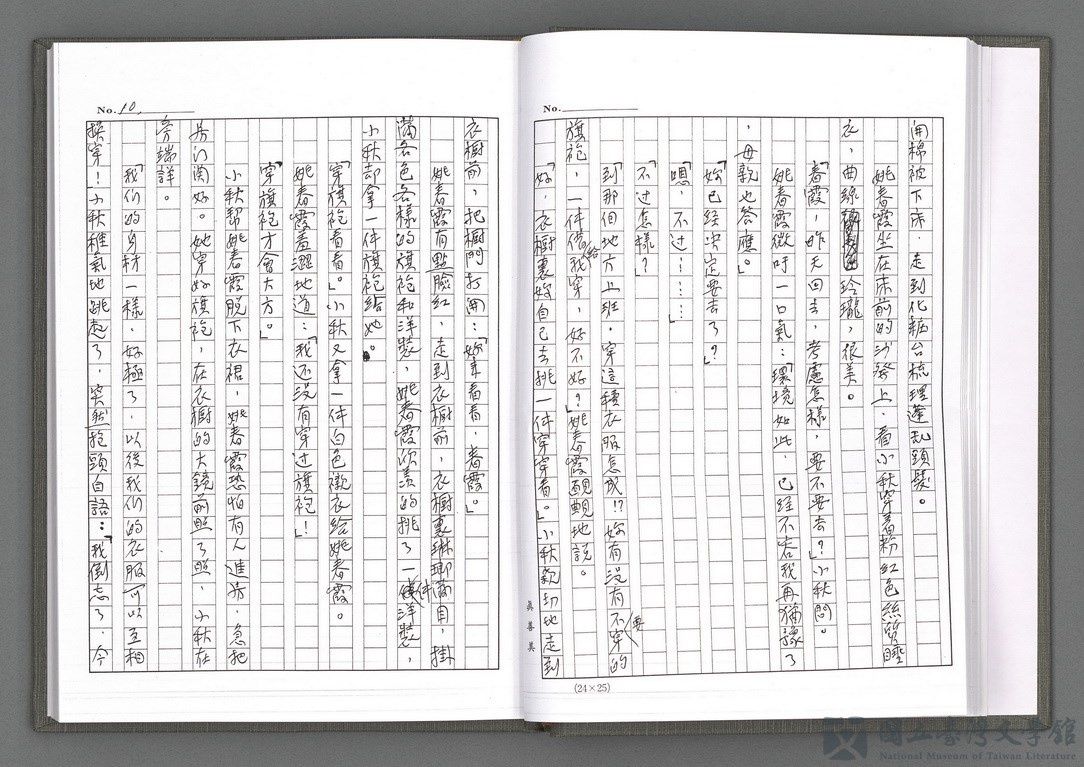 No.
開棉被下床,走到化粧台梳理蓬乱頭髮。
姚春霞坐在床前的沙發上,看小秋穿着粉紅色絲質睡
衣,曲線玲瓏,很美。
「春霞,昨天回去,考慮怎樣,要不要去?」小秋問。
姚春霞微吁一口氣:「環境如此,已經不容我再猶豫了
,母親也答應。」
「妳已經決定要去了?」
「嗯,不过………」
「不过怎樣?」
「到那個地方上班,穿這種衣服怎成!?妳有沒有不要穿的
旗袍,一件借給我穿,好不好?」姚春霞靦覥地說。
「好,衣橱裏妳自己去挑一件穿穿看。」小秋親切地走到
真善美
(24×25)
No. 10,
衣橱前,把橱門打開:「妳來看看,春霞。」
姚春霞有點臉紅,走到衣橱前,衣橱裏琳瑯滿目,掛
滿各色各樣的旗袍和洋裝,姚春霞欣羨的挑了一件洋裝,
小秋却拿一件旗袍給她。
「穿旗袍看看。」小秋又拿一件白色襯衣給姚春霞。
姚春霞羞澀地道:「我还沒有穿过旗袍」!
「穿旗袍才會大方。」
小秋幫姚春霞脫下衣裙,姚春霞恐怕有人進房,急把
房门関好。她穿好旗袍,在衣橱的大鏡前照了照,小秋在
旁端詳。
「我们的身材一樣,好極了,以後我们的衣服可以互相
換穿!」小秋稚氣地跳起了,突然抱頭自語:「我倒忘了,今
國立臺灣文學館
National Museum of Taiwan Literature